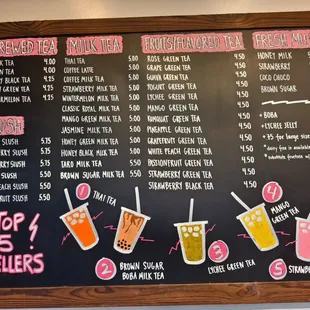 BREWED TEA
MILK TEA
FRUITS/FLAVORED TEA
FRESH MILK
TEA 4.00
TEA 4.00
BLACK TEA 4.25
GREEN TEA 4.25
MELON TEA 4.25
SLUSH 5.75
SLUSH 5.75
SLUSH 5.75
SLUSH
SLUSH
FRUIT SLUSH
TOP
5
SELLERS
THAI TEA 5.00
COFFEE LATTE 5.00
COFFEE MILK TEA 5.00
STRAWBERRY MILK TEA 5.00
WINTERMELON MILK TEA 5.00
CLASSIC ROYAL MILK TEA 5.00
MANGO GREEN MILK TEA 5.00
JASMINE MILK TEA 5.00
HONEY GREEN MILK TEA 5.00
HONEY BLACK MILK TEA 5.00
TARO MILK TEA 5.00
BROWN SUGAR MILK TEA
ROSE GREEN TEA 4.50
GRAPE GREEN TEA 4.50
GUAVA GREEN TEA 4.50
YOGURT GREEN TEA 4.50
LYCHEE GREEN TEA 4.50
MANGO GREEN TEA 4.50
KUMQUAT GREEN TEA 4.50
PINEAPPLE GREEN TEA 4.50
GRAPEFRUIT GREEN TEA 4.50
WHITE PEACH GREEN TEA 4.50
PASSIONFRUIT GREEN TEA 4.50
STRAWBERRY GREEN TEA 4.50
STRAWBERRY BLACK TEA 4.50
HONEY MILK
STRAWBERRY
COCO CHOCO
BROWN SUGAR
+ BOBA
+ LYCHEE JELLY
1 THAI TEA
2 BROWN SUGAR
BOBA MILK TEA
3
LYCHEE GREEN TEA
4
MANGO
GREEN TEA
5